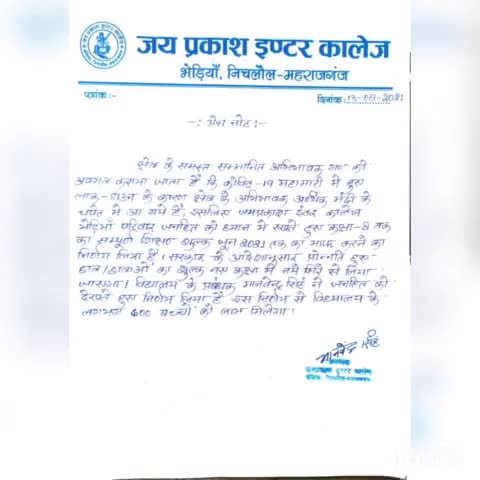 जय प्रकाश इण्टर कालेज
भेड़ियाँ, निचलौल-महराजगंज
पत्रांक:-
दिनांक: 13-08-2021
-: प्रेस नोट :-
क्षेत्र के समस्त सम्मानित अभिभावक गण को
अवगत कराया जाता है कि कोविड-19 महामारी में हुए
लाक-डाउन के कारण क्षेत्र के अभिभावक आर्थिक मंदी के
चपेट में आ गये हैं, इसलिए जयप्रकाश इंटर कालेज
भेड़ियाँ परिवार जनहित को ध्यान में रखते हुए कक्षा-8 तक
का सम्पूर्ण शिक्षण शुल्क जून 2021 तक का माफ करने का
निर्णय लिया है। सरकार के आदेशानुसार प्रोन्नति हुए
छात्र/छात्राओं का शुल्क नए कक्षा में नये सिरे से लिया
जाएगा। विद्यालय के प्रबंधक मानवेन्द्र सिंह ने जनहित को
देखते हुए निर्णय लिया है, इस निर्णय से विद्यालय के
लगभग 600 बच्चों को लाभ मिलेगा।
मानवेन्द्र सिंह